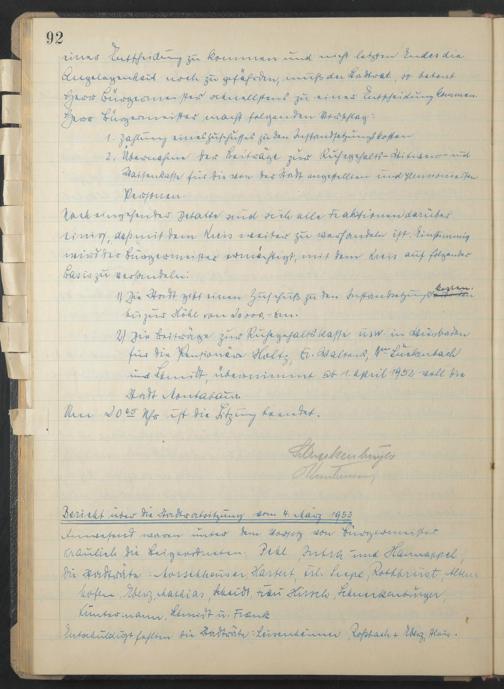 92
einer Entscheidung zu kommen und nicht letzten Endes die
Angelegenheit noch zu gefährden, muß der Stadtrat, so betont
Herr Bürgermeister schnellstens zu einer Entscheidung kommen.
Herr Bürgermeister macht folgenden Vorschlag:
1. Zahlung eines Zuschusses zu den Instandsetzungskosten
2. Übernahme der Beiträge zur Ruhegehalts-Witwen- und
Waisenkasse für die von der Stadt angestellten und pensionierten
Personen.
Nach eingehender Debatte sind sich alle Fraktionen darüber
einig, daß mit dem Kreis weiter zu verhandeln ist. Einstimmig
wird der Bürgermeister ermächtigt, mit dem Kreis auf folgender
Basis zu verhandeln:
1) Die Stadt gibt einen Zuschuß zu den Instandsetzungskosten
bis zur Höhe von 20000.- DM.
2) Die Beiträge zur Ruhegehaltskasse usw. in Wiesbaden
für die Pensionäre Holtz,
und Schmidt, übernimmt ab 1. April 1952 voll die
Stadt Montabaur.
Um 20 Uhr ist die Sitzung beendet.
Schneckenburger
Bericht über die Stadtratssitzung vom 4. März 1953
Anwesend waren unter dem Vorsitz von Bürgermeister
Kraulich die Beigeordneten: Pehl, und Hannappel,
die Stadträte: Hartert, Rothbrust,
Mathias, Frau Hirsch, Schneckenburger,
Küntermann, Schmidt u. Frank
Entschuldigt fehlten die Stadträte: Roßbach +